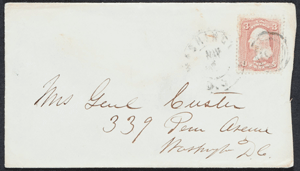 3
Mrs Genl Custer
339 Penn Avenue
Washigt D.C.